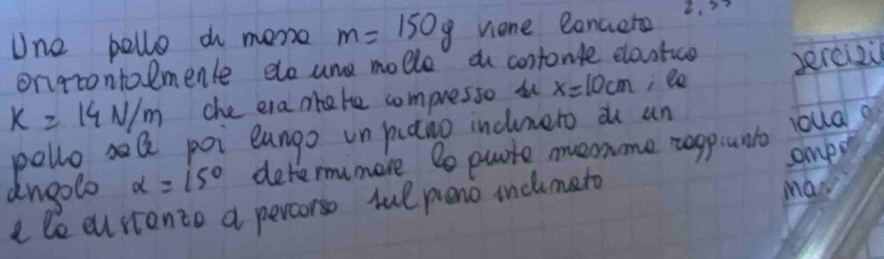 2,55
Una palla di massa m = 150g viene lanciata
orizzontalmente da una molla di costante elastica
K = 14 N/m che era stata compressa di x = 10cm; la
palla sale poi lungo un piano inclinato di un
angolo α = 15° determinare la quota massima raggiunta
e la distanza d percorsa sul piano inclinato